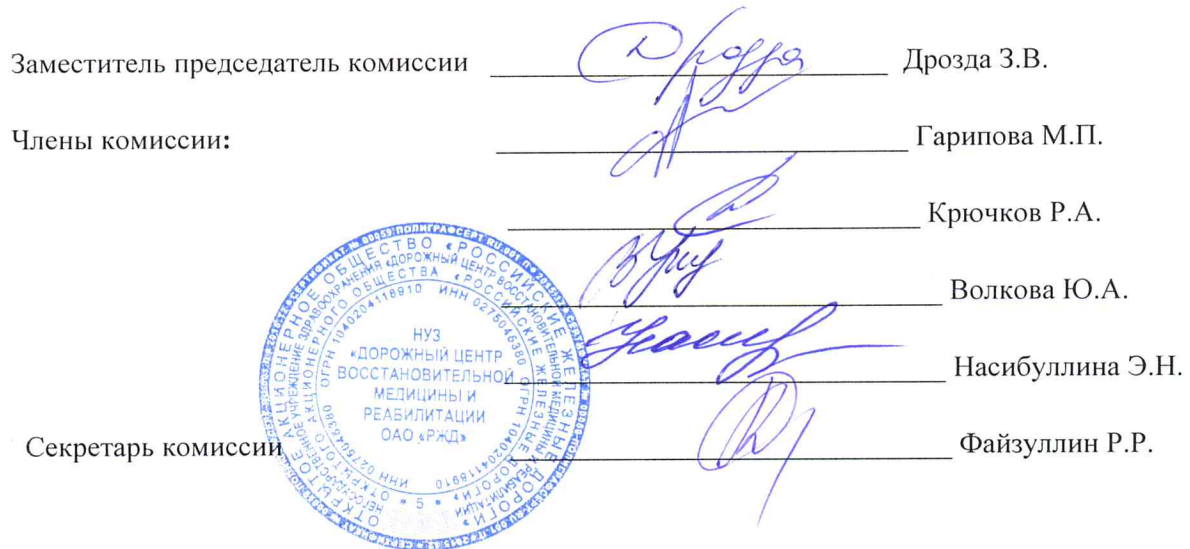 Заместитель председатель комиссии Дрозда З.В.
Члены комиссии: Гарипова М.П.
Крючков Р.А.
Волкова Ю.А.
Насибуллина Э.Н.
Секретарь комиссии Файзуллин Р.Р.
ОТКРЫТОЕ АКЦИОНЕРНОЕ ОБЩЕСТВО «РОССИЙСКИЕ ЖЕЛЕЗНЫЕ ДОРОГИ»
НЕГОСУДАРСТВЕННОЕ УЧРЕЖДЕНИЕ ЗДРАВООХРАНЕНИЯ «ДОРОЖНЫЙ ЦЕНТР ВОССТАНОВИТЕЛЬНОЙ МЕДИЦИНЫ И РЕАБИЛИТАЦИИ
ОТКРЫТОГО АКЦИОНЕРНОГО ОБЩЕСТВА «РОССИЙСКИЕ ЖЕЛЕЗНЫЕ ДОРОГИ» * 5 *
ОГРН 1040204118910 ИНН 0275046380 ОГРН 1040204118910 ИНН 0275046380
НУЗ
«ДОРОЖНЫЙ ЦЕНТР
ВОССТАНОВИТЕЛЬНОЙ
МЕДИЦИНЫ И
РЕАБИЛИТАЦИИ
ОАО «РЖД»